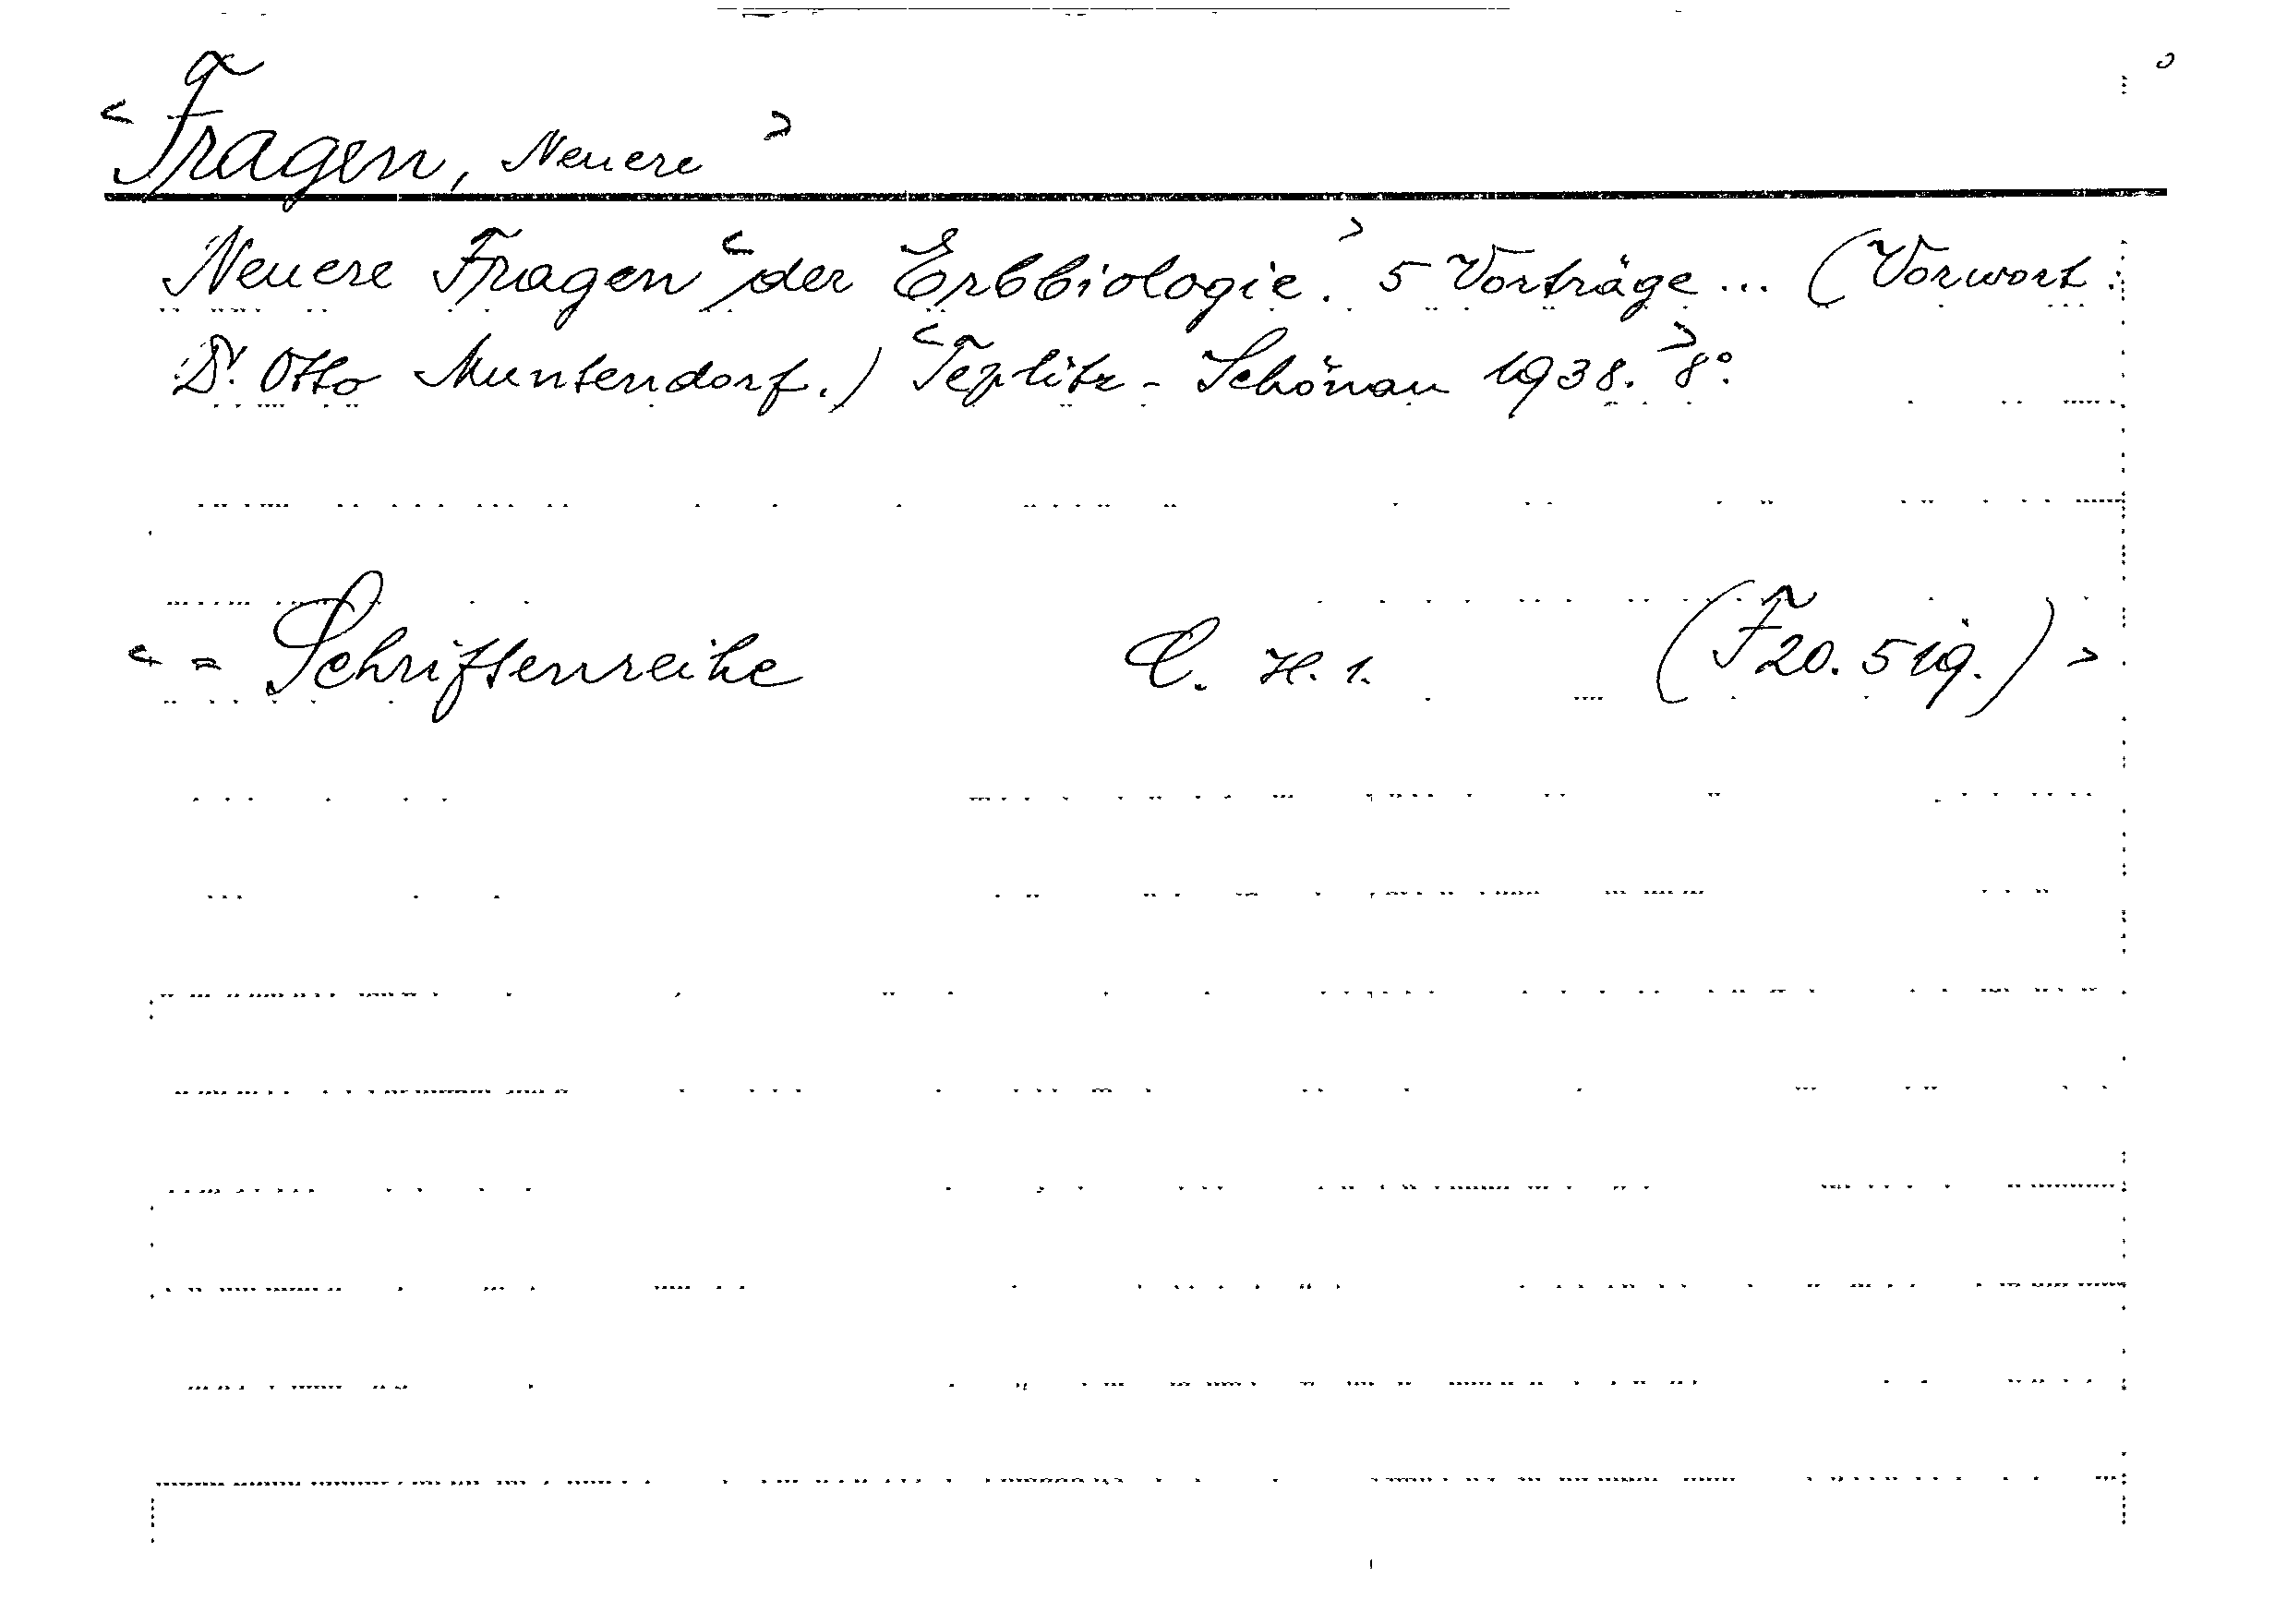 < Fragen, Neuere >
Neuere Fragen < der Erbbiologie. > 5 Vorträge ... (Vorwort:
Dr. Otto Muntendorf.) < Teplitz-Schönau 1938. > 8°.
< = Schriftenreihe C. H. 1. (F 20. 519.) >